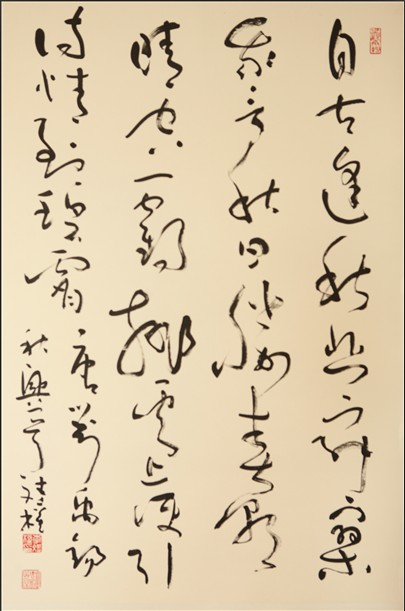 自古逢秋悲寂寥
我言秋日勝春朝
晴空一鶴排雲上便引
詩情到碧霄唐劉禹錫
秋興